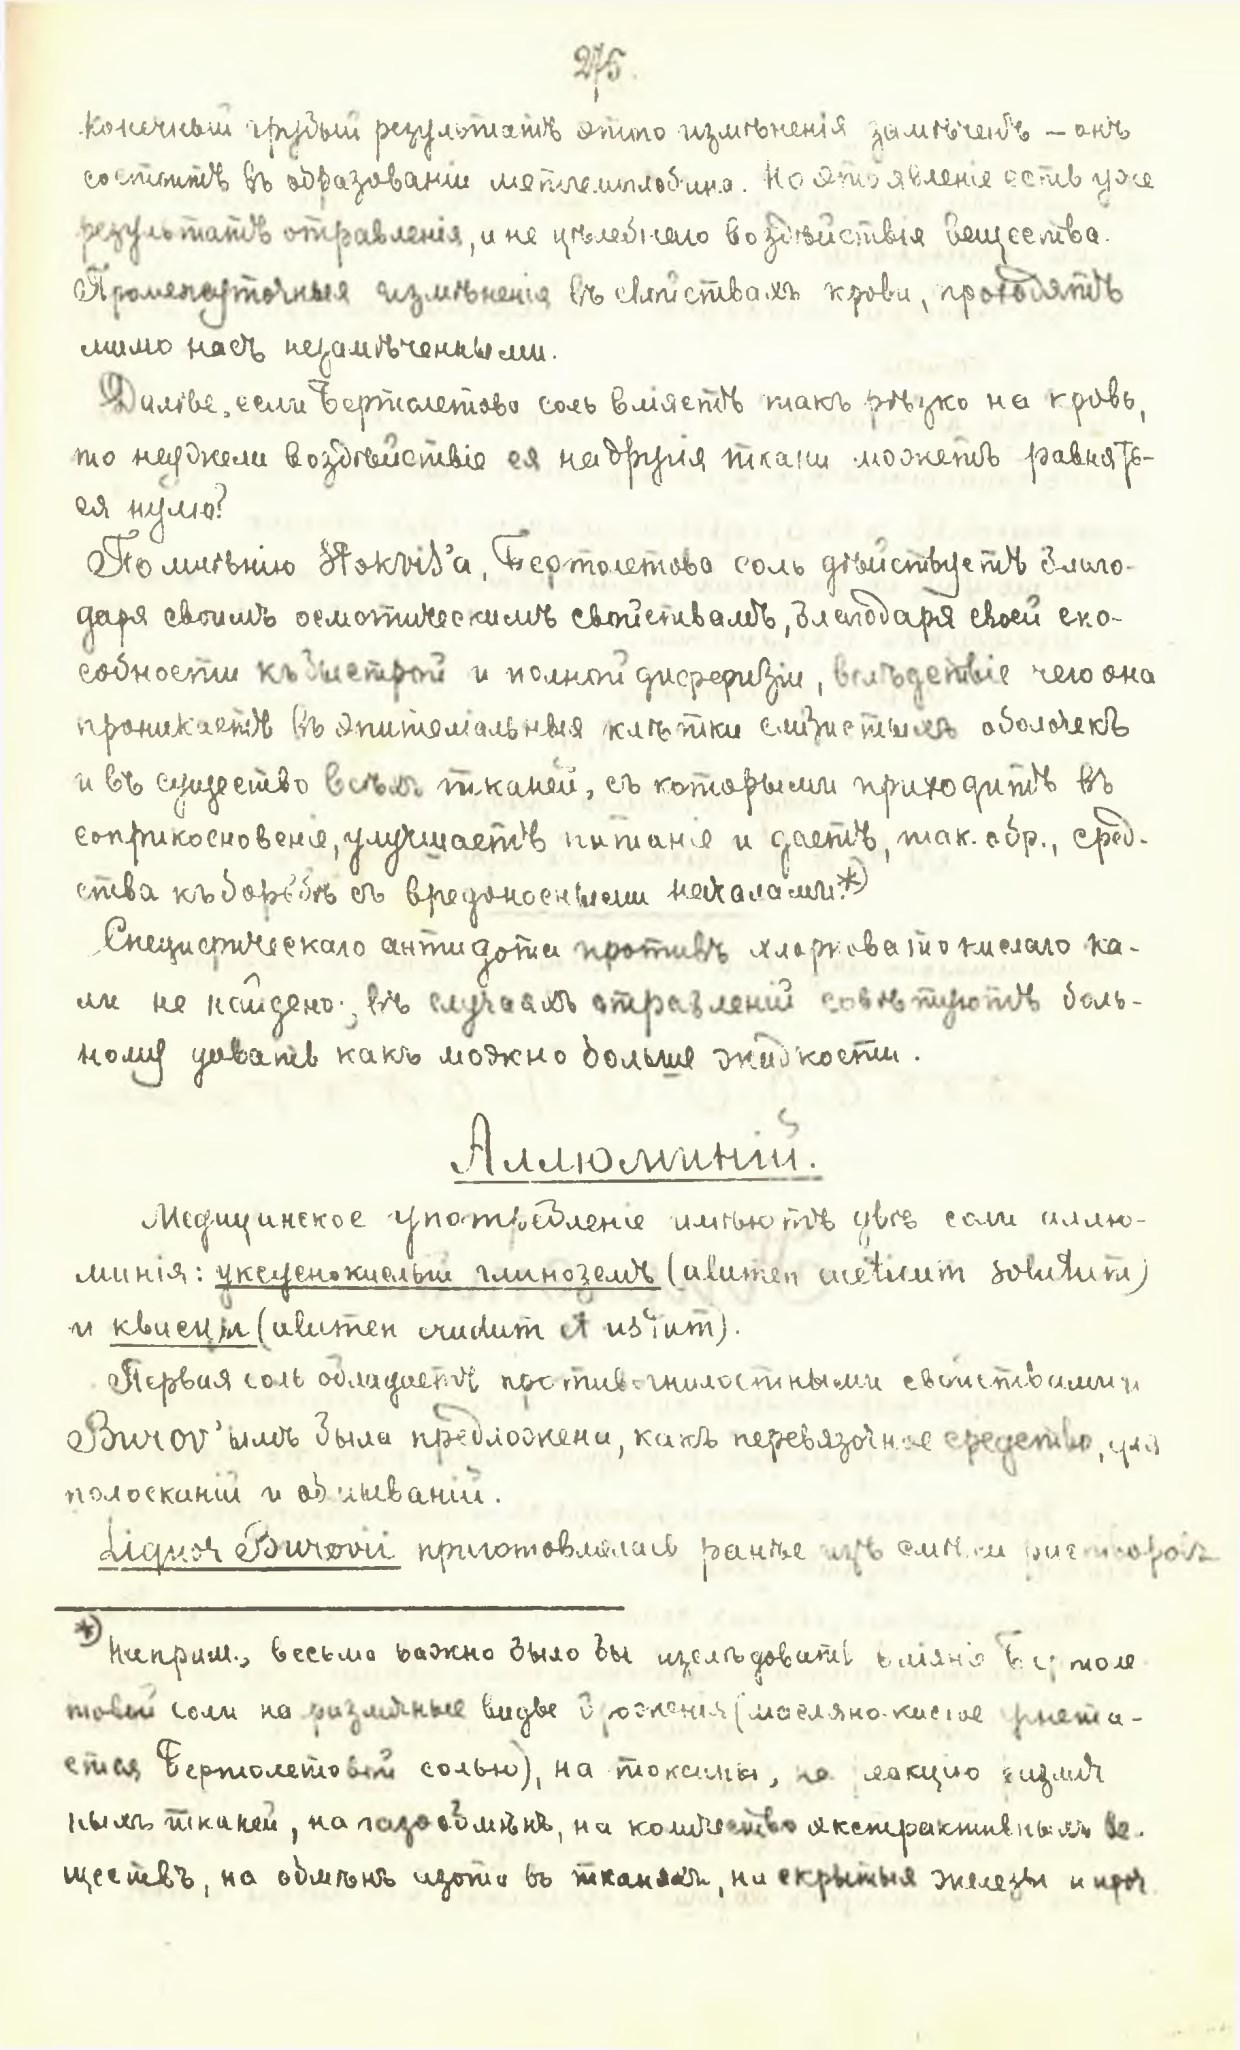 275.
конечный грубый результатъ этого измѣненія замѣченъ – онъ
состоитъ въ образованіи метгемоглобина. Но это явленіе есть уже
результатъ отравленія, и не цѣлебнаго воздѣйствія вещества.
Промежуточныя измѣненія въ свойствахъ крови, проходятъ
мимо насъ незамѣченными.
Далѣе, если Бертолетова соль вліяетъ такъ рѣзко на кровь,
то неужели воздѣйствіе ея на другія ткани можетъ равнять-
ся нулю?
По мнѣнію Stokvis'а, Бертолетова соль дѣйствуетъ благо-
даря своимъ осмотическимъ свойствамъ, благодаря своей спо-
собности къ быстрой и полной диффузіи, вслѣдствіе чего она
проникаетъ въ эпителіальныя клѣтки слизистыхъ оболочекъ
и въ существо всѣхъ тканей, съ которыми приходитъ въ
соприкосновеніе, улучшаетъ питаніе и даетъ, так. обр., сред-
ства къ борьбѣ съ вредоносными началами.*)
Специфическаго антидота противъ хлорноватокислаго ка-
ли не найдено; въ случаяхъ отравленій совѣтуютъ боль-
ному давать какъ можно больше жидкости.
Аллюминій.
Медицинское употребленіе имѣютъ двѣ соли аллю-
минія: уксуснокислый глиноземъ (alumen aceticum solutum)
и квасцы (alumen crudum et ustum).
Первая соль обладаетъ противогнилостными свойствами и
Burov'ымъ была предложена, какъ перевязочное средство, для
полосканій и обмываній.
Liquor Burovii приготовлялась ранѣе изъ смѣси растворовъ
*) Наприм., весьма важно было бы изслѣдовать вліяніе Бертоле
товой соли на различные виды броженія (масляно-кислое угнета-
ется Бертолетовой солью), на токсины, на реакцію различ
ныхъ тканей, на газообмѣнъ, на количество экстрактивныхъ ве-
ществъ, на обмѣнъ азота въ тканяхъ, на скрытыя железы и проч.